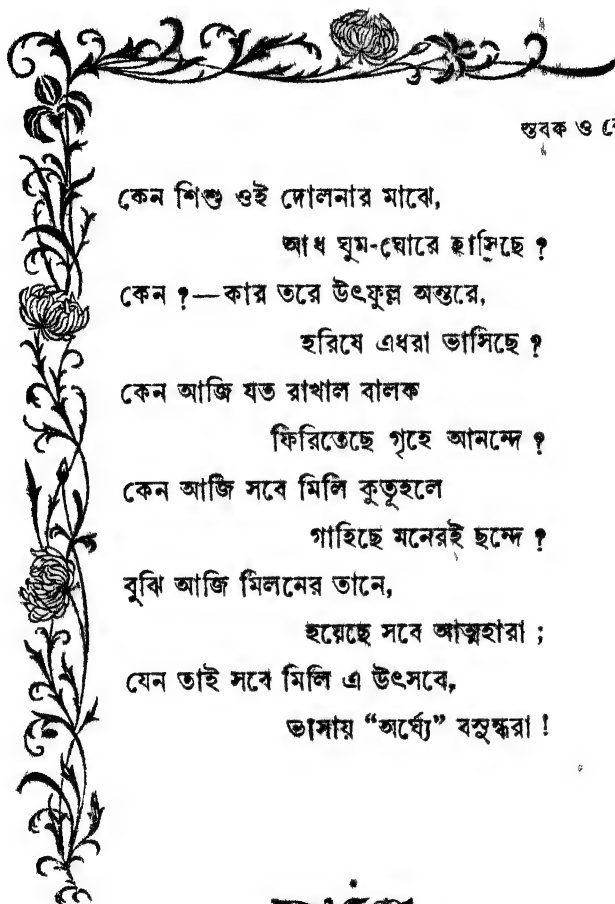 স্তবক ও
কেন শিশু ওই দোলনার মাঝে,
আধ ঘুম-ঘোরে হাসিছে ?
কেন ?—কার তরে উৎফুল্ল অন্তরে,
হরিষে এধরা ভাসিছে ?
কেন আজি যত রাখাল বালক
ফিরিতেছে গৃহে আনন্দে ?
কেন আজি সবে মিলি কুতূহলে
গাহিছে মনেরই ছন্দে ?
বুঝি আজি মিলনের তানে,
হয়েছে সবে আত্মহারা ;
যেন তাই সবে মিলি এ উৎসবে,
ভাসায় “অর্ঘ্যে” বসুন্ধরা !